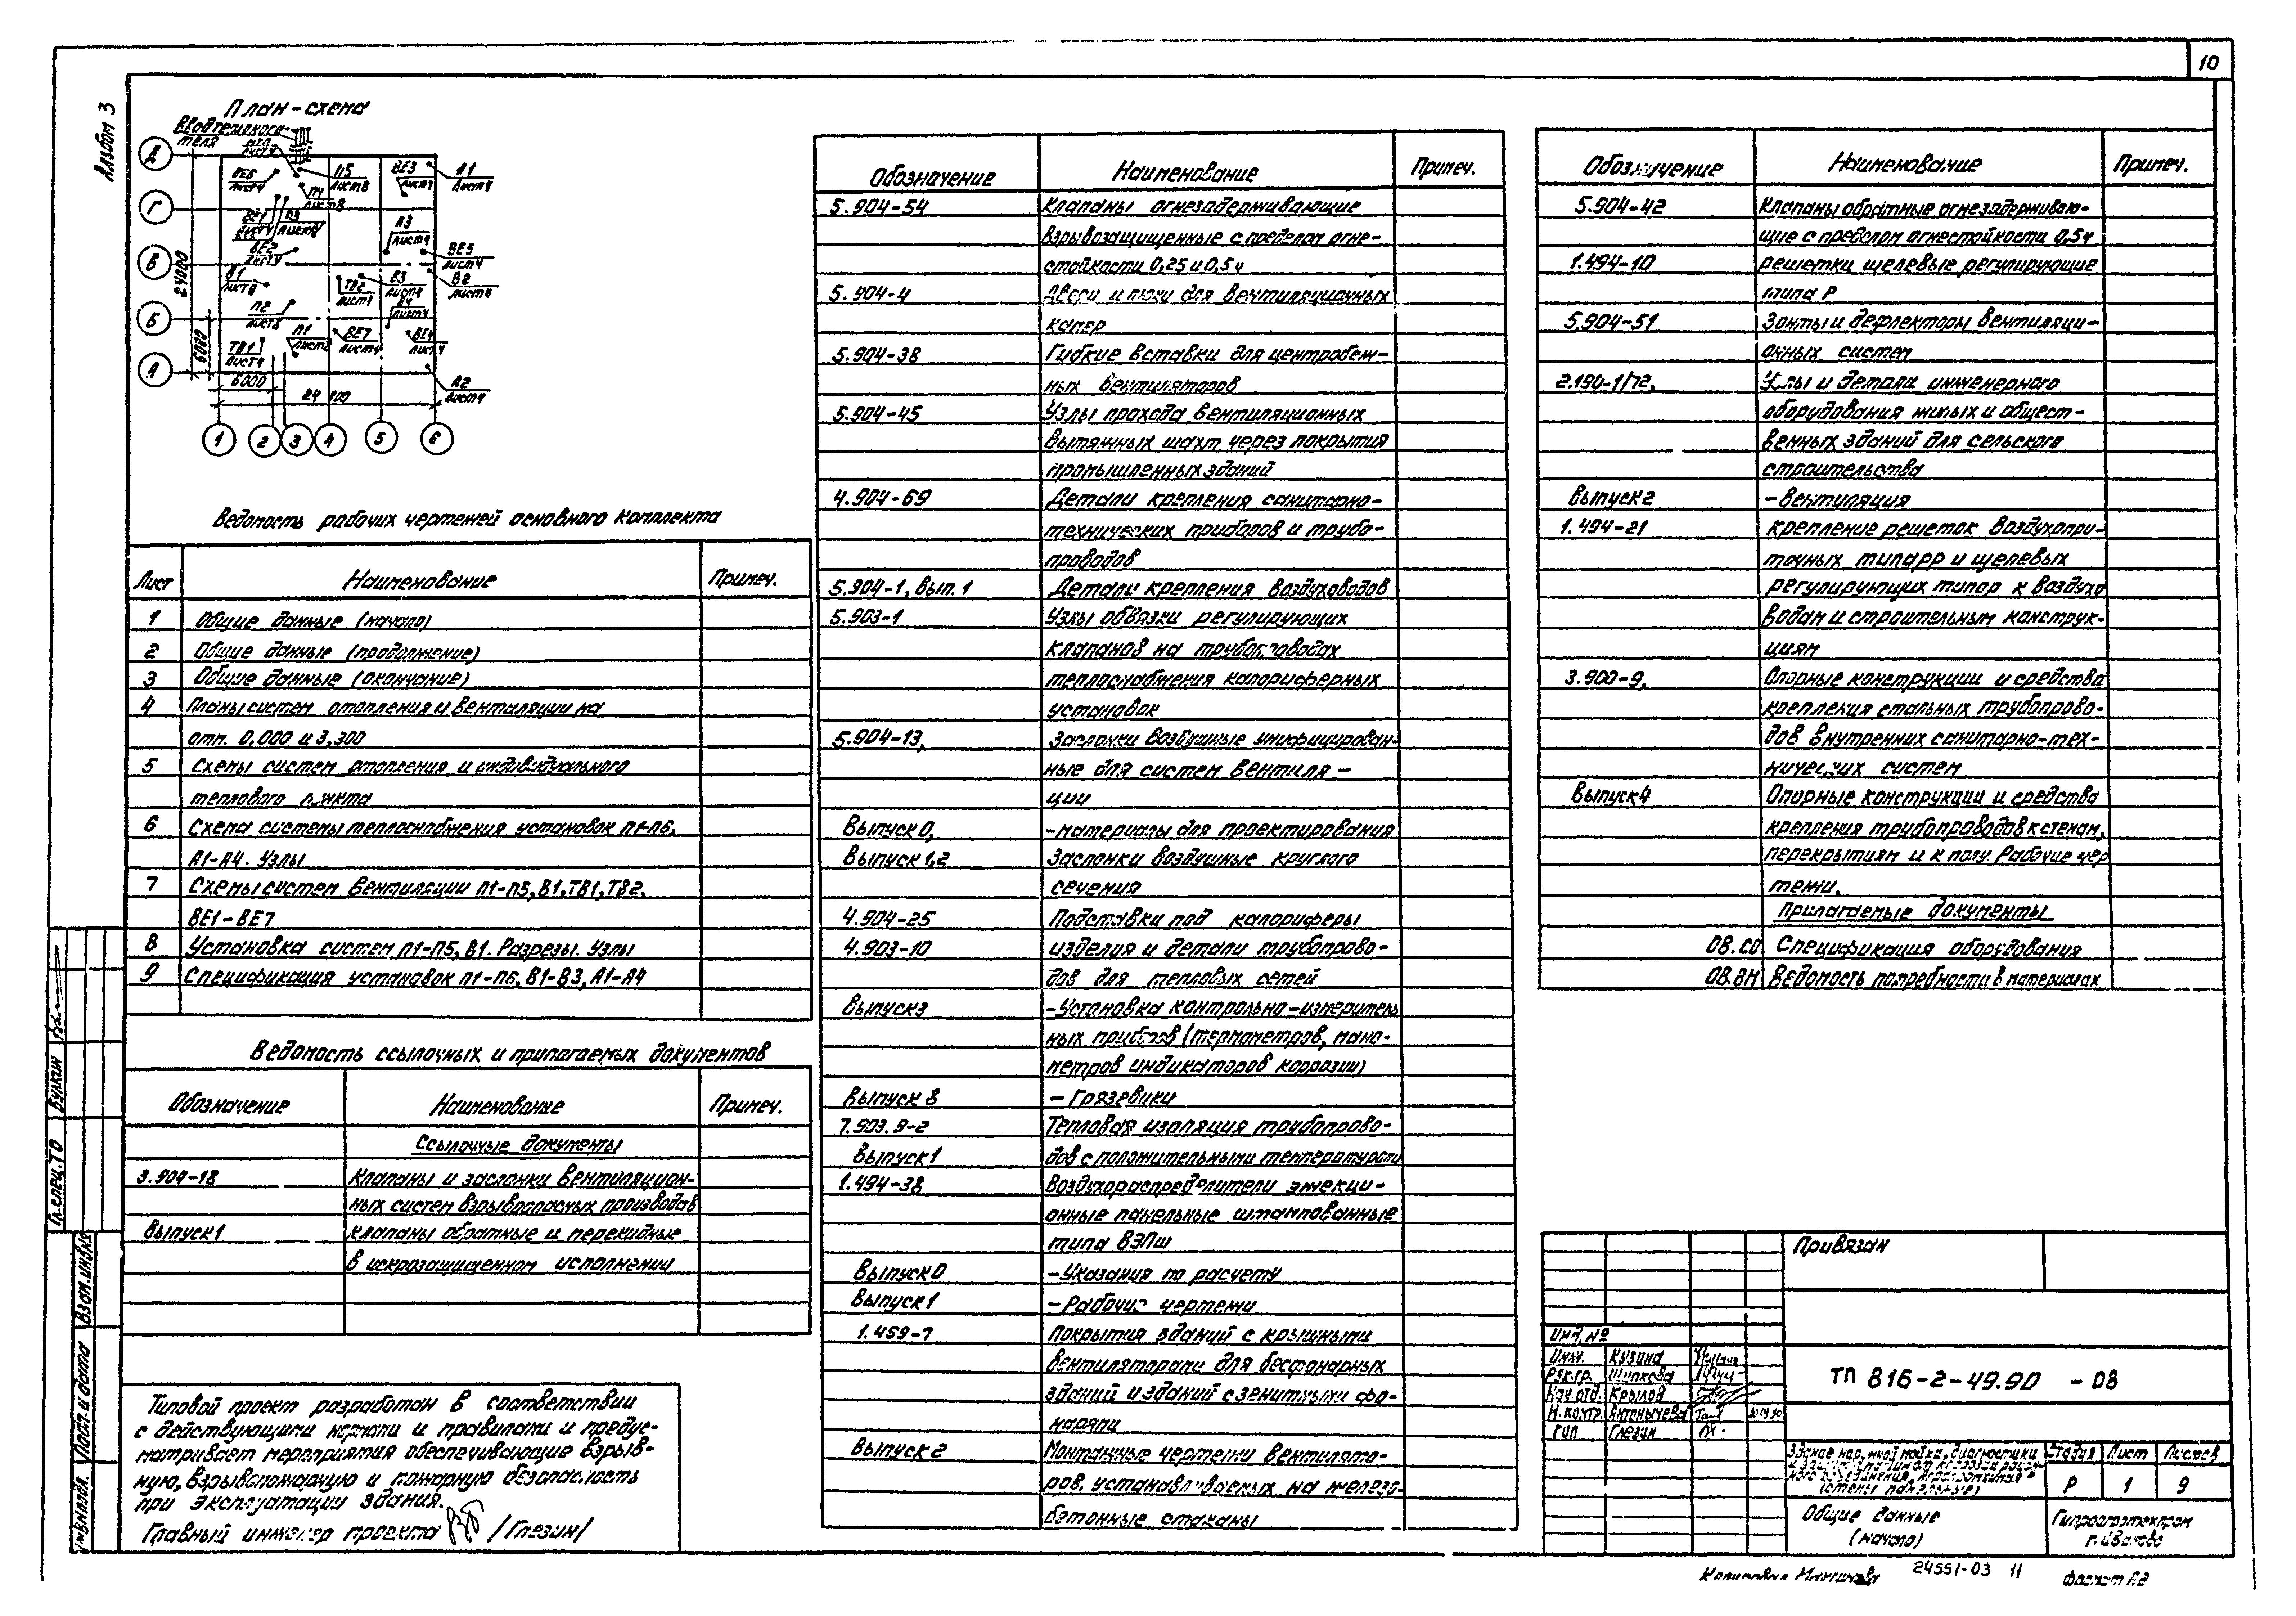 10
Альбом 3
План-схема
Ввод теплоносителя
Д
Г
В
Б
А
24000
6000
ВЕ6
Лист 4
П5
Лист 8
П4
Лист 8
ВЕ3
Лист 4
А1
Лист 4
ВЕ1
Лист 4
П3
Лист 8
ВЕ2
Лист 4
А3
Лист 4
ВЕ5
Лист 4
В1
Лист 8
ТВ2
Лист 4
В3
Лист 4
А4
Лист 4
В2
Лист 4
П2
Лист 8
ТВ1
Лист 4
П1
Лист 8
ВЕ7
Лист 4
ВЕ4
Лист 4
А2
Лист 4
6000
1 2 3 4 5 6
Ведомость рабочих чертежей основного комплекта
Лист Наименование Примеч.
1 Общие данные (начало)
2 Общие данные (продолжение)
3 Общие данные (окончание)
4 Планы систем отопления и вентиляции на
отм. 0,000 и 3,300
5 Схемы систем отопления и индивидуального
теплового пункта
6 Схема системы теплоснабжения установок П1-П6,
А1-А4. Узлы
7 Схемы систем вентиляции П1-П5, В1, ТВ1, ТВ2,
ВЕ1-ВЕ7
8 Установка систем П1-П5, В1. Разрезы. Узлы
9 Спецификация установок П1-П6, В1-В3, А1-А4
Ведомость ссылочных и прилагаемых документов
Обозначение Наименование Примеч.
Ссылочные документы
3.904-18 Клапаны и заслонки вентиляцион-
ных систем взрывоопасных производств
Выпуск 1 клапаны обратные и перекидные
в искрозащищенном исполнении
Типовой проект разработан в соответствии
с действующими нормами и правилами и предус-
матривает мероприятия обеспечивающие взрыв-
ную, взрывопожарную и пожарную безопасность
при эксплуатации здания.
Главный инженер проекта /Глезин/
Обозначение Наименование Примеч.
5.904-54 Клапаны огнезадерживающие
взрывозащищенные с пределом огне-
стойкости 0,25 и 0,5 ч
5.904-4 Двери и люки для вентиляционных
камер
5.904-38 Гибкие вставки для центробеж-
ных вентиляторов
5.904-45 Узлы прохода вентиляционных
вытяжных шахт через покрытия
промышленных зданий
4.904-69 Детали крепления санитарно-
технических приборов и трубо-
проводов
5.904-1, вып. 1 Детали крепления воздуховодов
5.903-1 Узлы обвязки регулирующих
клапанов на трубопроводах
теплоснабжения калориферных
установок
5.904-13, Заслонки воздушные унифицирован-
ные для систем вентиля-
ции
Выпуск 0, -материалы для проектирования
Выпуск 1,2 Заслонки воздушные круглого
сечения
4.904-25 Подставки под калориферы
4.903-10 изделия и детали трубопрово-
дов для тепловых сетей
Выпуск 3 -Установка контрольно-измеритель
ных приборов (термометров, мано-
метров индикаторов коррозии)
Выпуск 8 - Грязевики
7.903.9-2 Тепловая изоляция трубопрово-
Выпуск 1 дов с положительными температурами
1.494-38 Воздухораспределители эжекци-
онные панельные штампованные
типа ВЭПш
Выпуск 0 -Указания по расчету
Выпуск 1 -Рабочие чертежи
1.459-7 Покрытия зданий с крышными
вентиляторами для бесфонарных
зданий и зданий с зенитными фо-
нарями
Выпуск 2 Монтажные чертежи вентилято-
ров, устанавливаемых на железо-
бетонные стаканы
Обозначение Наименование Примеч.
5.904-42 Клапаны обратные огнезадерживаю-
щие с пределом огнестойкости 0,5ч
1.494-10 решетки щелевые регулирующие
типа Р
5.904-51 Зонты и дефлекторы вентиляци-
онных систем
2.190-1/72, Узлы и детали инженерного
оборудования жилых и общест-
венных зданий для сельского
строительства
Выпуск 2 -вентиляция
1.494-21 крепление решеток воздухопри-
точных типа РР и щелевых
регулирующих типа Р к воздухо
водам и строительным конструк-
циям
3.900-9, Опорные конструкции и средства
крепления стальных трубопрово-
дов внутренних санитарно-тех-
нических систем
Выпуск 4 Опорные конструкции и средства
крепления трубопроводов к стенам,
перекрытиям и к полу. Рабочие чер
тежи.
Прилагаемые документы
ОВ.СО Спецификация оборудования
ОВ.ВМ Ведомость потребности в материалах
Привязан
Инв. №
Инж. Кузина
Рук.гр. Шипкова
Нач.отд. Крылов
Н.контр. Антонычева
ГИП Глезин
ТП 816-2-49.90 -ОВ
Стадия Лист Листов
Р 1 9
(стены панельные)
Общие данные
(начало)
Гипроагротехпром
г. Иваново
Гл.спец. ТО Булкин
Взам.инв.№
Подп. и дата
Инв.№ подл.
Копировал
24551-03 11
Формат А2